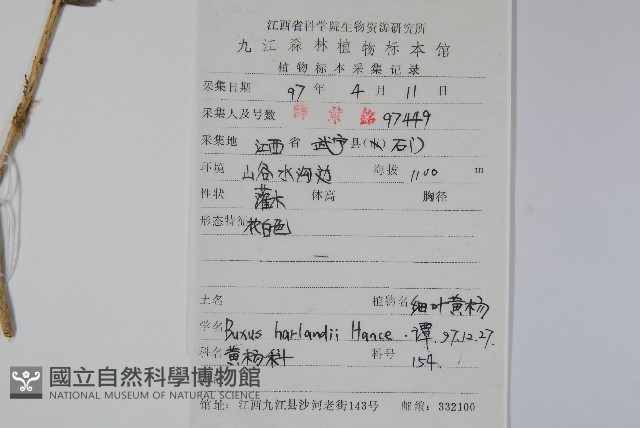 江西省科学院生物资源研究所
九江森林植物标本馆
植物标本采集记录
采集日期 97 年 4 月 11 日
采集人及号数 97449
采集地 江西 省 武宁 县(市) 石门
环境 山谷水沟边 海拔 1100 m
性状 灌木 体高 胸径
形态特征 花白色
土名 植物名 细叶黄杨
学名 Buxus harlandii Hance. 谭 97.12.27.
科名 黄杨科 科号 154.
國立自然科學博物館
NATIONAL MUSEUM OF NATURAL SCIENCE
馆址:江西九江县沙河老街143号 邮编:332100